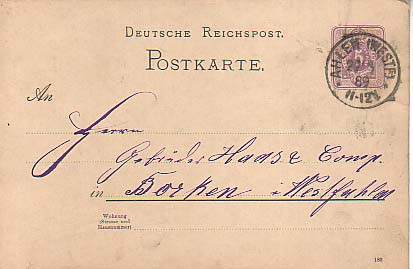 DEUTSCHE REICHSPOST.
POSTKARTE.
AHLEN (WESTF)
89
11-12V
An
Herren
Gebrüder Haas & Comp.
in Borken i/Westfahlen
Wohnung
(Strasse und
Hausnummer)